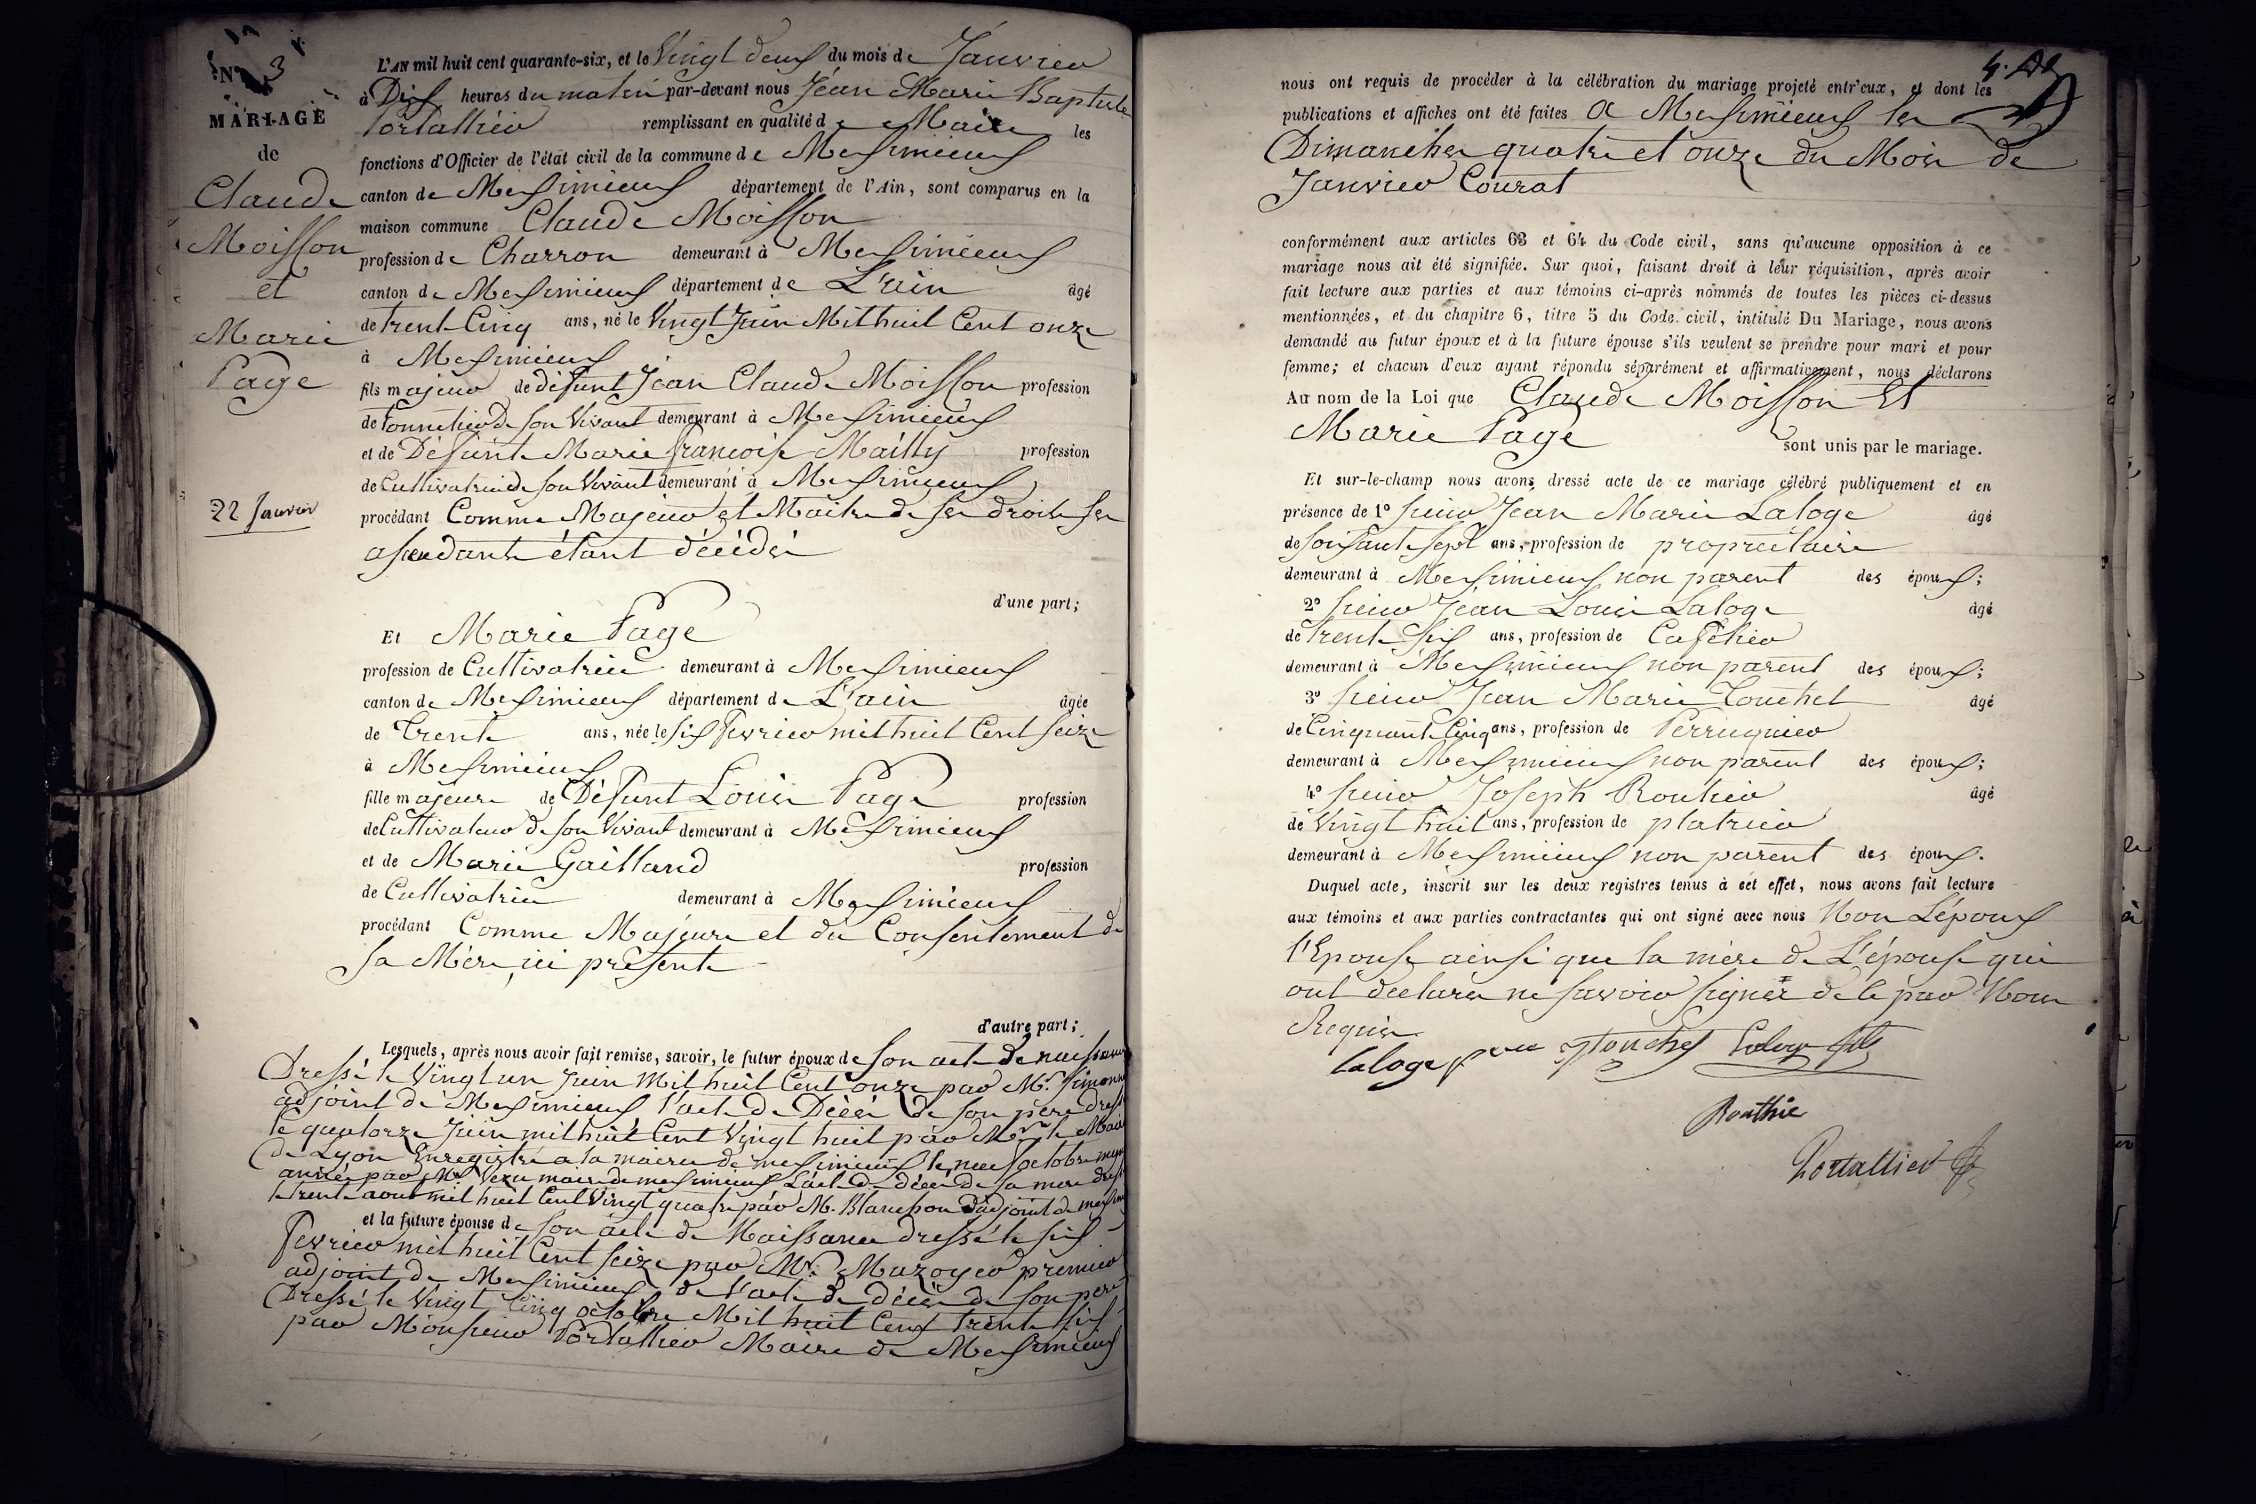 N° 3
MARIAGE
de
Claude
Moisson
et
Marie
Page
22 Janvier
L'AN mil huit cent quarante-six, et le Vingt deux du mois de Janvier
à Dix heures du matin par-devant nous Jéan Marie Baptiste
Portallier remplissant en qualité de Maire les
fonctions d'Officier de l'état civil de la commune de Meximieux
canton de Meximieux département de l'Ain, sont comparus en la
maison commune Claude Moisson
profession de Charron demeurant à Meximieux
canton de Meximieux département de L'ain âgé
de trente Cinq ans, né le Vingt Juin Mil huit Cent onze
à Meximieux
fils majeur de défunt Jéan Claude Moisson profession
de Tonnelier de son Vivant demeurant à Meximieux
et de Défunte Marie françoise Mailly profession
de Cultivatrice de son Vivant demeurant à Meximieux
procédant Comme Majeur et Maitre de ses droits ses
asendants étant décédés
d'une part;
Et Marie Page
profession de Cultivatrice demeurant à Meximieux
canton de Meximieux département de L'ain âgée
de Trente ans, née le six Fevrier mil huit Cent seize
à Meximieux
fille majeure de Défunt Louis Page profession
de Cultivateur de son Vivant demeurant à Meximieux
et de Marie Gailland profession
de Cultivatrice demeurant à Meximieux
procédant Comme Majeure et du Consentement de
sa Mère ici présente
d'autre part;
Lesquels, après nous avoir fait remise, savoir, le futur époux de son acte de naissance
Dressé le Vingt un Juin Mil huit Cent onze par Mr. Simonn
adjoint de Meximieux l'acte de Décès de son père dressé
le quatorze Juin mil huit Cent Vingt huit par Mr le Maire
de Lyon Enregistré a la mairie de meximieux le neuf octobre meme
année par Mr maire de meximieux L'acte de décès de sa mere dressé
trente aout mil huit Cent Vingt quatre par M. Blanchon adjoint de mexim
et la future épouse de son acte de Naissance dressé le six
Fevrier mil huit Cent seize par Mr. Mazoyer premier
adjoint de Meximieux de l'acte de décès de son père
Dressé le Vingt Cinq octobre Mil huit Cent trente six
par Monsieur Portallier Maire de Meximieux
nous ont requis de procéder à la célébration du mariage projeté entr'eux, et dont les
publications et affiches ont été faites A Meximieux les
Dimanches quatre et onze du Mois de
Janvier Courat
conformément aux articles 63 et 64 du Code civil, sans qu'aucune opposition à ce
mariage nous ait été signifiée. Sur quoi, faisant droit à leur réquisition, après avoir
fait lecture aux parties et aux témoins ci-après nommés de toutes les pièces ci-dessus
mentionnées, et du chapitre 6, titre 5 du Code civil, intitulé Du Mariage, nous avons
demandé au futur époux et à la future épouse s'ils veulent se prendre pour mari et pour
femme; et chacun d'eux ayant répondu séparément et affirmativement, nous déclarons
Au nom de la Loi que Claude Moisson Et
Marie Page sont unis par le mariage.
Et sur-le-champ nous avons dressé acte de ce mariage célébré publiquement et en
présence de 1° sieur Jean Marie Laloge âgé
de soixante sept ans, profession de propriétaire
demeurant à Meximieux non parent des époux;
2° sieur Jéan Louis Laloge âgé
de trente six ans, profession de Cafetier
demeurant à Meximieux non parent des époux;
3° sieur Jean Marie Touchet âgé
de Cinquante Cinq ans, profession de Perruquier
demeurant à Meximieux non parent des époux;
4° sieur Joseph Routhier âgé
de Vingt huit ans, profession de platrier
demeurant à Meximieux non parent des époux.
Duquel acte, inscrit sur les deux registres tenus à cet effet, nous avons fait lecture
aux témoins et aux parties contractantes qui ont signé avec nous Non L'époux
l'Epouse ainsi que la mère de L'épouse qui
ont declaré ne savoir signer de le par Nous
Requis
Laloge père Touchet Laloge fils
Routhie
Portallier